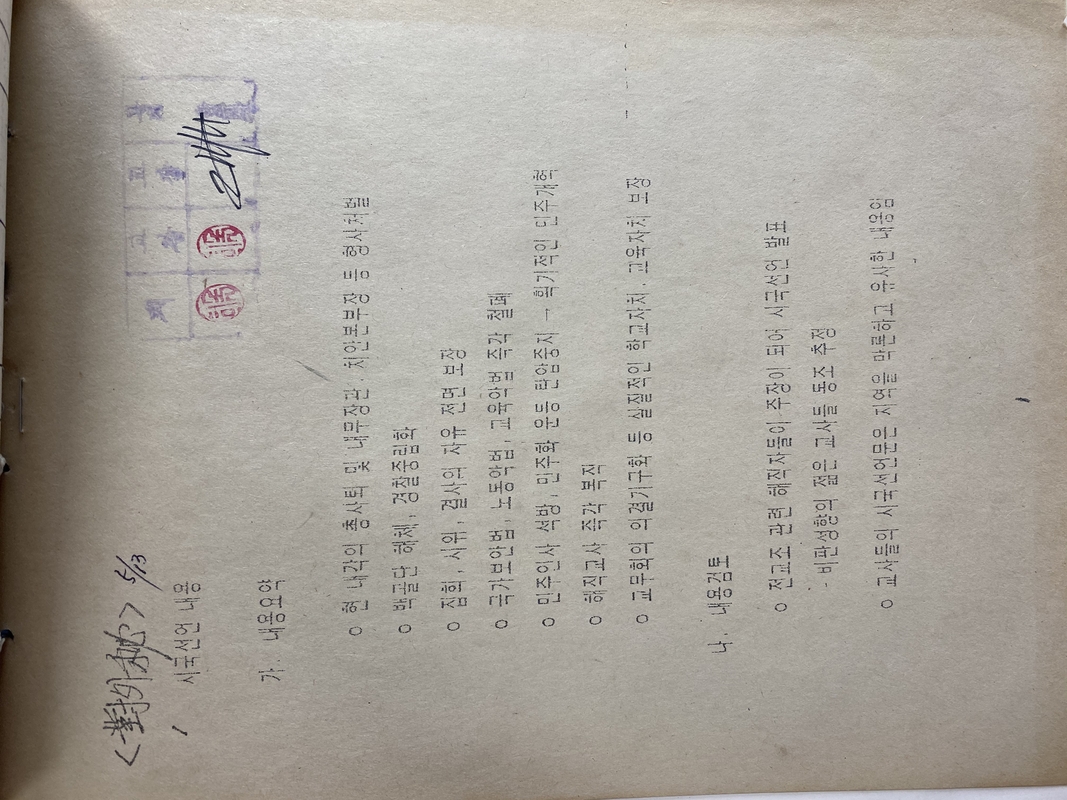 <對外秘> 5/13
시국선언 내용
가. 내용요약
o 현 내각의 총사퇴 및 내무장관, 치안본부장 등 형사처벌
o 백골단 해체, 경찰중립화
o 집회, 시위, 결사의 자유 전면 보장
o 국가보안법, 노동악법, 교육악법 즉각 철폐
o 민주인사 석방, 민주화 운동 탄압중지 - 획기적인 민주개혁
o 해직교사 즉각 복직
o 교무회의 의결기구화 등 실질적인 학교자치, 교육자치 보장
나. 내용검토
o 전교조 관련 해직자들이 주장이 되어 시국선언 발표
- 비판성향의 젊은 교사들 동조 추정
o 교사들의 시국선언문은 지역을 막론하고 유사한 내용임